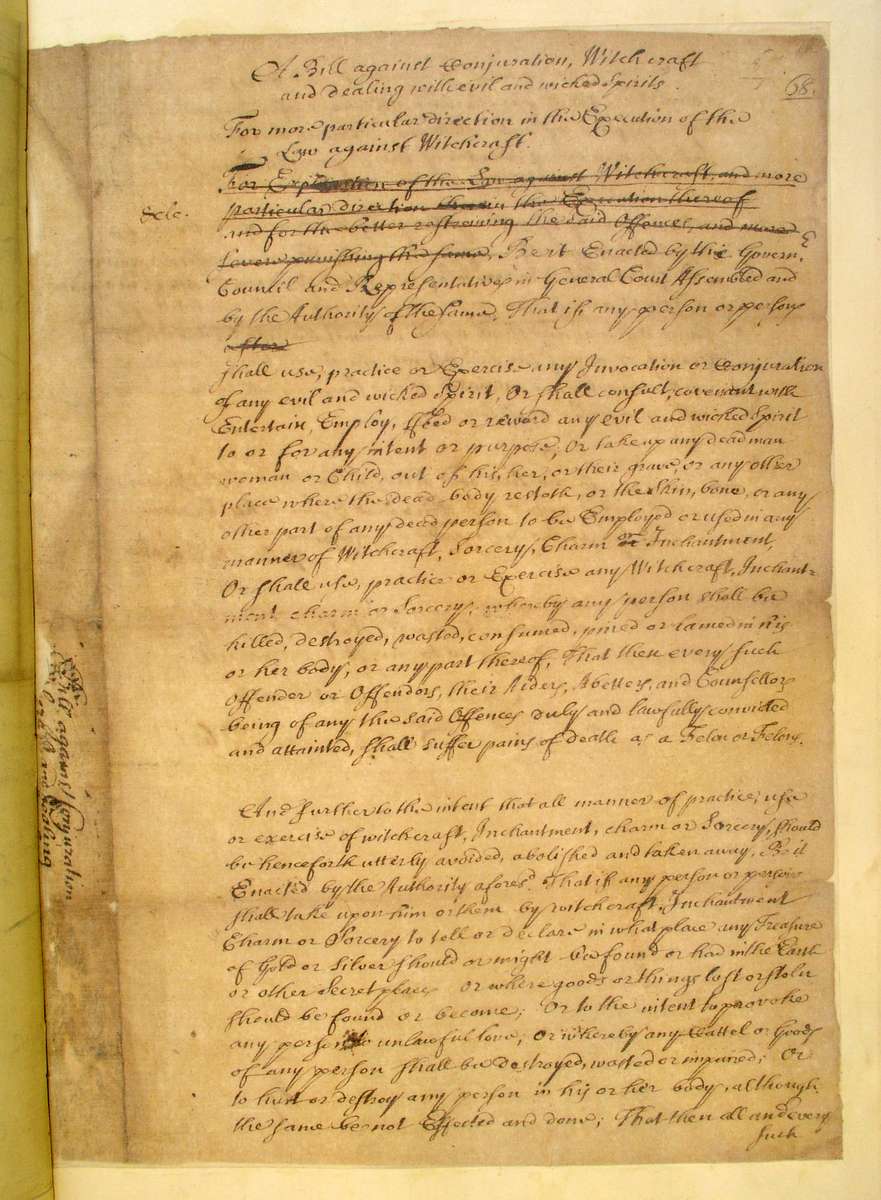 68.
A Bill against Conjuration, Witchcraft
and dealing with evil and wicked Spirits.
For more particular direction in the Execution of the
Law against Witchcraft.
For Explanation of the Law against Witchcraft, and more
particular direction therein the Execution thereof
and for the better restraining the said Offences, and more
dele.
severe punishing the same, Be it Enacted by the Govern.r
Council and Representatives in General Court Assembled and
by the Authority of the same, That if any person or persons
after
shall use, practice or Exercise any Invocation or Conjuration
of any evil and wicked Spirit, Or shall consult, covenant with
Entertain, Employ, ffeed or reward any evil and wicked Spirit
to or for any intent or purpose; Or take up any dead man
woman or Child, out of his, her, or their grave, or any other
place where the dead body resteth, or the Skin, bone, or any
other part of any dead person to be Employed or used in any
manner of Witchcraft, Sorcery, Charm or Inchantment,
Or shall use, practice or Exercise any Witchcraft, Inchant=
ment charm or Sorcery, whereby any person shall be
killed, destroyed, wasted, consumed, pined or lamed in his
or her body, or any part thereof, That then every such
Offender or Offendors, their Aiders, Abetters, and Counsellors
being of any the said Offences duly and lawfully convicted
and attainted, shall suffer pains of death as a Felon or Felons.
And further to the intent that all manner of practice, use
or exercise of witchcraft, Inchantment, charm or Sorcery, should
be henceforth utterly avoided, abolished and taken away. Be it
Enacted by the Authority aforesd That if any person or persons
shall take upon him or them by witchcraft, Inchantment
Charm or Sorcery to tell or declare in what place any Treasure
of Gold or Silver should or might be found or had in the Earth
or other Secret places Or where goods or things lost or stoln
should be found or become; Or to the intent to provoke
any person to unlawful love; or whereby any Cattel or Goods
of any person shall be destroyed, wasted or impaired; Or
to hurt or destroy any person in his or her body, although
the same be not Effected and done; That then all and every
such
Bill against Conjuration